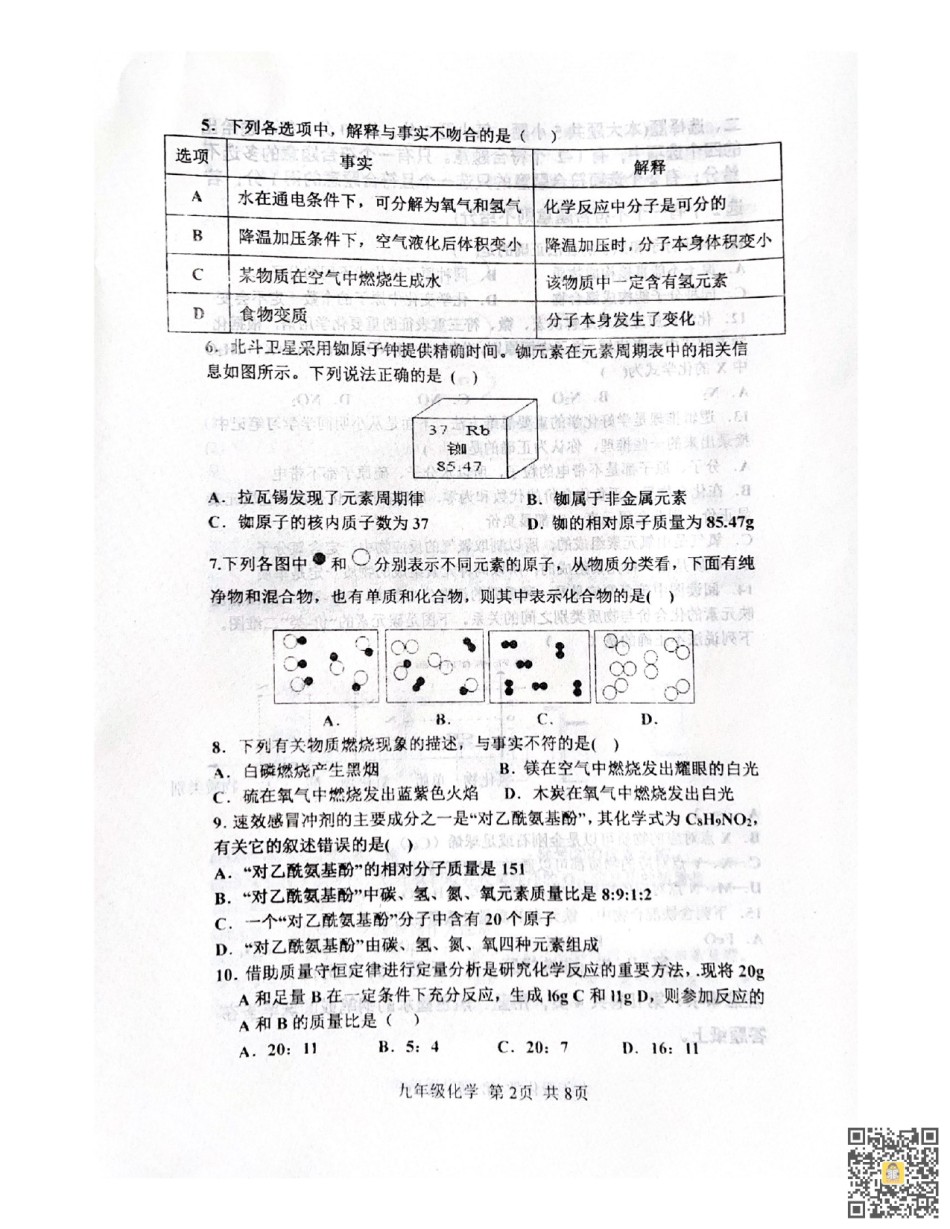 5. 下列各选项中，解释与事实不吻合的是（ ）
选项 事实 解释
A 水在通电条件下，可分解为氧气和氢气 化学反应中分子是可分的
B 降温加压条件下，空气液化后体积变小 降温加压时，分子本身体积变小
C 某物质在空气中燃烧生成水 该物质中一定含有氢元素
D 食物变质 分子本身发生了变化
6. 北斗卫星采用铷原子钟提供精确时间。铷元素在元素周期表中的相关信
息如图所示。下列说法正确的是（ ）
37 Rb
铷
85.47
A．拉瓦锡发现了元素周期律 B．铷属于非金属元素
C．铷原子的核内质子数为 37 D．铷的相对原子质量为 85.47g
7.下列各图中 和 分别表示不同元素的原子，从物质分类看，下面有纯
净物和混合物，也有单质和化合物，则其中表示化合物的是( )
A. B. C. D.
8．下列有关物质燃烧现象的描述，与事实不符的是( )
A．白磷燃烧产生黑烟 B．镁在空气中燃烧发出耀眼的白光
C．硫在氧气中燃烧发出蓝紫色火焰 D．木炭在氧气中燃烧发出白光
9．速效感冒冲剂的主要成分之一是“对乙酰氨基酚”，其化学式为 C₈H₉NO₂，
有关它的叙述错误的是( )
A．“对乙酰氨基酚”的相对分子质量是 151
B．“对乙酰氨基酚”中碳、氢、氮、氧元素质量比是 8:9:1:2
C．一个“对乙酰氨基酚”分子中含有 20 个原子
D．“对乙酰氨基酚”由碳、氢、氮、氧四种元素组成
10．借助质量守恒定律进行定量分析是研究化学反应的重要方法，.现将 20g
A 和足量 B 在一定条件下充分反应，生成 16g C 和 11g D，则参加反应的
A 和 B 的质量比是（ ）
A．20：11 B．5：4 C．20：7 D．16：11
九年级化学 第 2页 共 8页